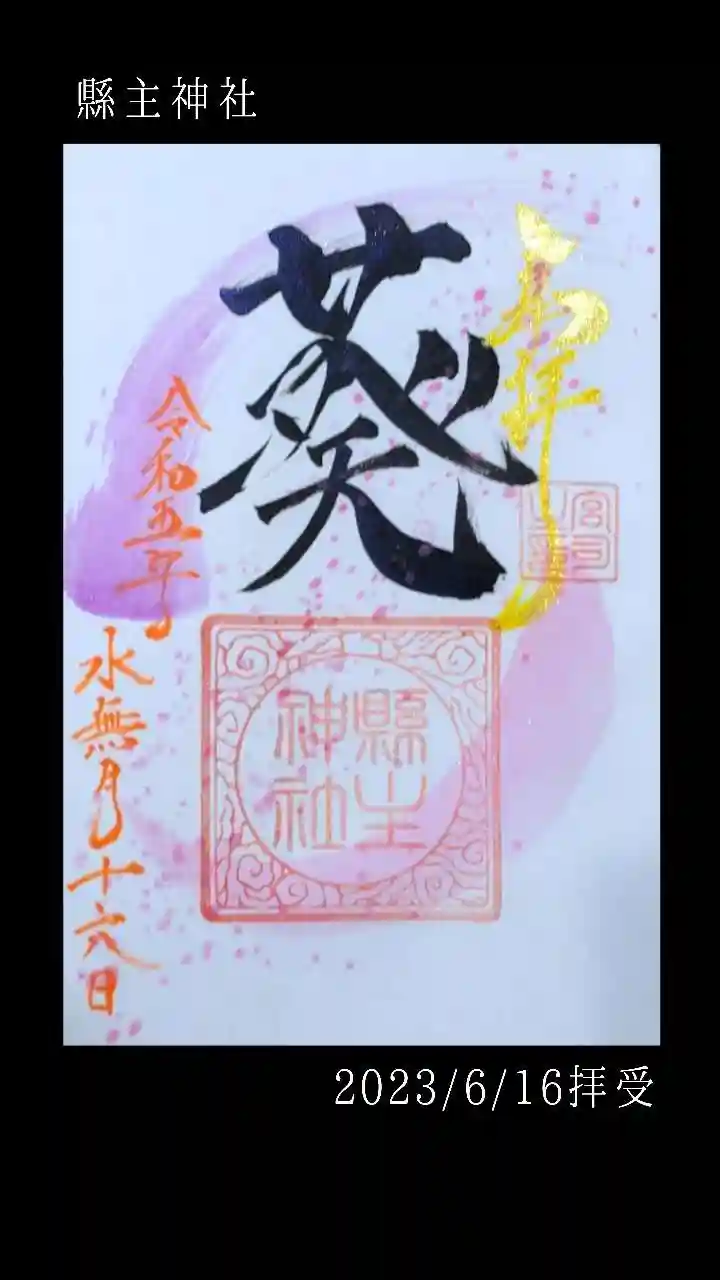 縣主神社
奉拝
葵
令和五年
水無月十六日
宮司
縣主
神社
2023/6/16拝受